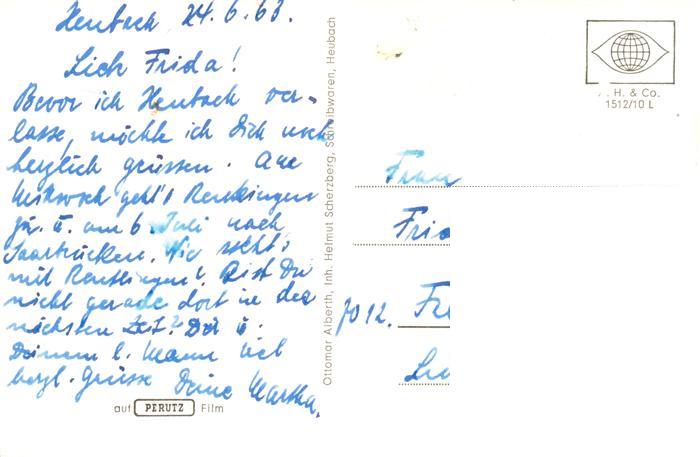 Heubach 24.6.63.
Lieb Frida!
Bevor ich Heubach ver-
lasse, möchte ich Dich noch
herzlich grüssen. Am
Mittwoch geht's Reutlingen
zu. u. am 6 Juli nach
Saarbrücken. Wie steht's
mit Reutlingen? Bist Du
nicht gerade dort in der
nächsten Zeit? Dir u.
Deinem l. Mann viel
herzl. Grüsse Deine Martha.
auf PERUTZ Film
Ottomar Alberth, Inh. Helmut Scherzberg, Schreibwaren, Heubach
H. & Co.
1512/10 L
Frau
Frid
7012. Fe